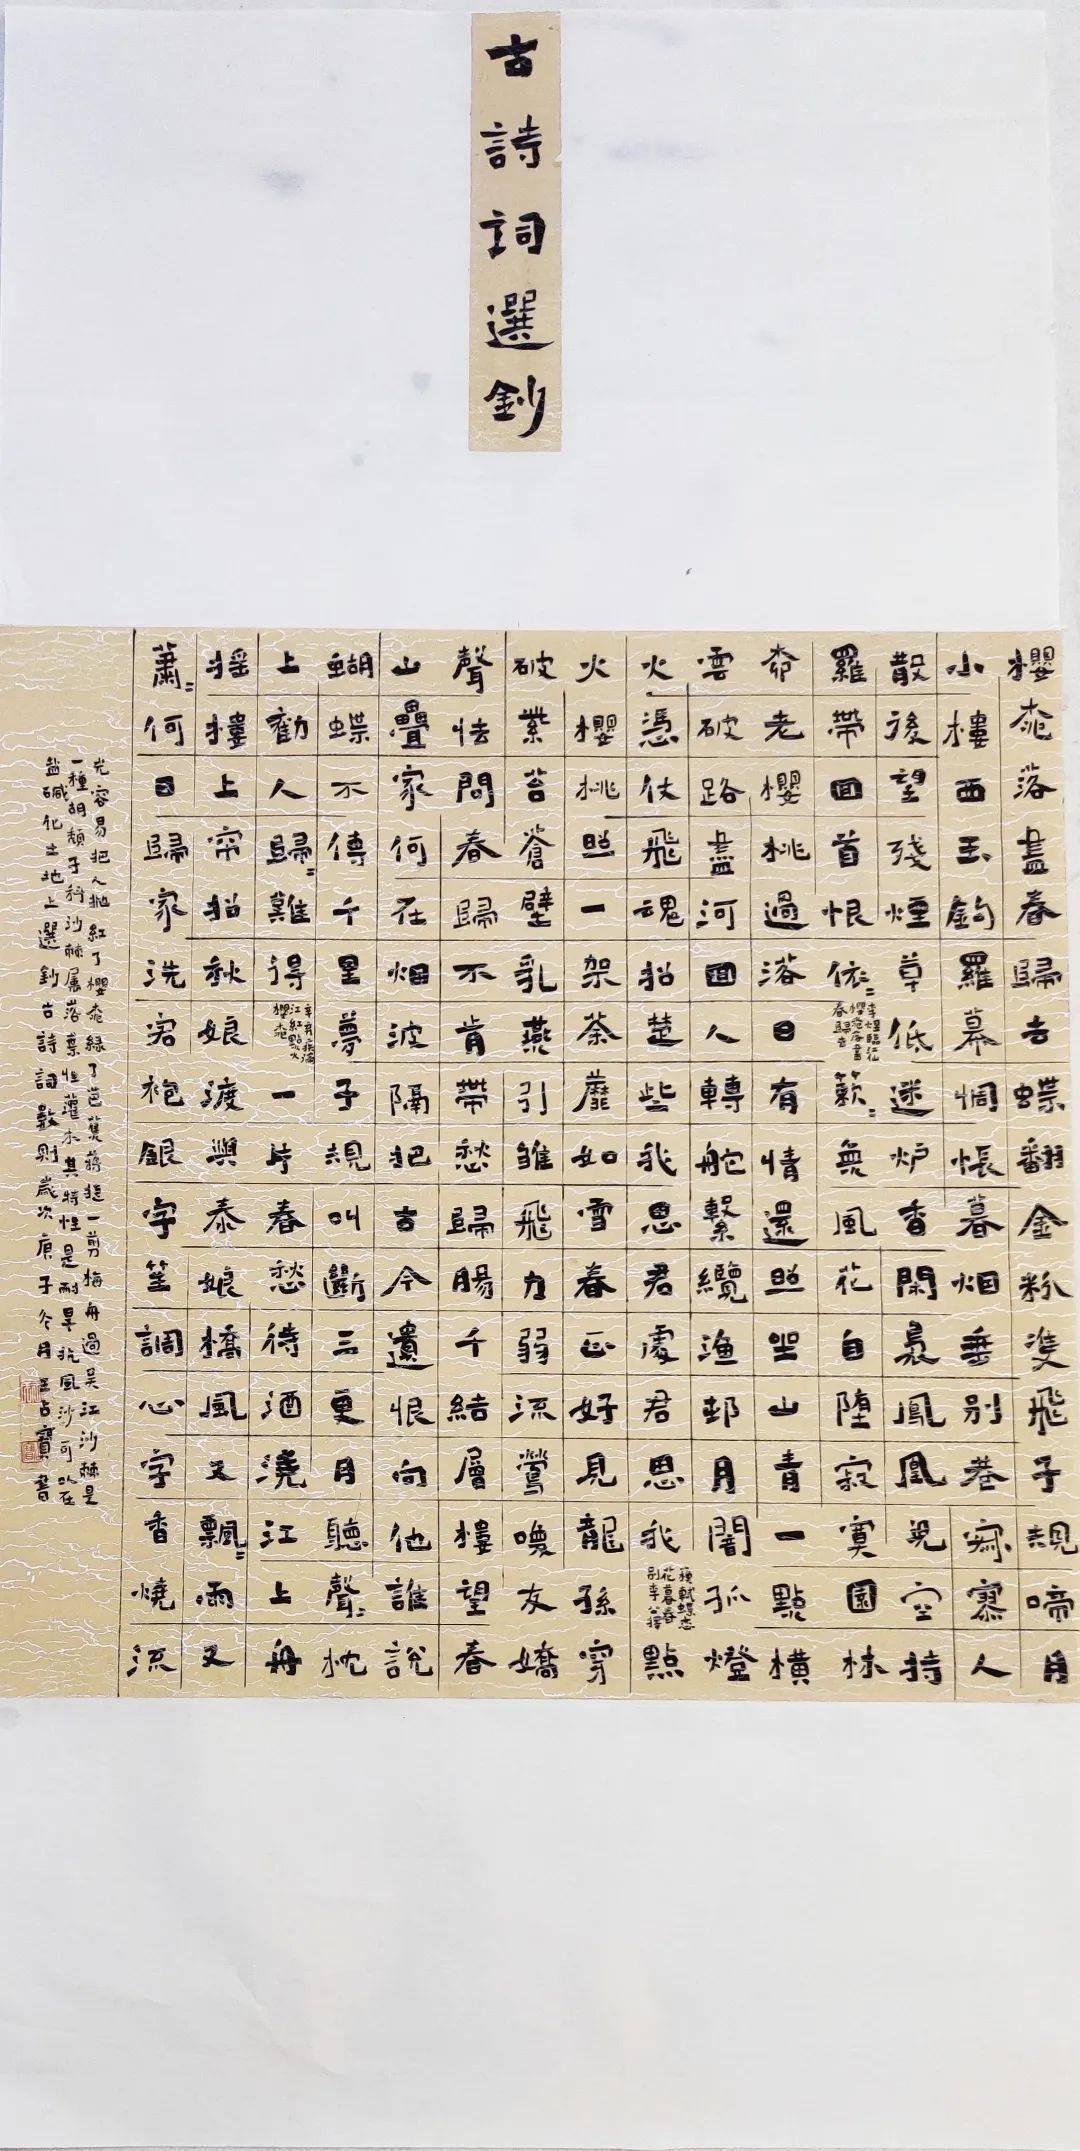 古詩詞選鈔
櫻桃落盡春歸去蝶翻金粉雙飛子規啼月
小樓西玉鉤羅幕惆悵暮烟垂別巷寂寥人
散後望殘煙草低迷炉香閑裊鳳凰兒空持
羅帶回首恨依〻李煜臨江仙櫻桃落盡春歸去蔌〻無風花自墮寂寞園林
柳老櫻桃過落日有情還照坐山青一點橫
雲破路盡河回人轉舵繫纜漁邨月闇孤燈
火憑仗飛魂招楚些我思君處君思我蘇軾蝶戀花暮春別李公擇點
火櫻桃照一架荼蘼如雪春正好見龍孫穿
破紫苔蒼壁乳燕引雛飛力弱流鶯喚友嬌
聲怯問春歸不肯帶愁歸腸千結層樓望春
山疊家何在烟波隔把古今遺恨向他誰說
蝴蝶不傳千里夢子規叫斷三更月聽聲〻枕
上勸人歸〻難得辛棄疾滿江紅點火櫻桃一片春愁待酒澆江上舟
搖樓上帘招秋娘渡與泰娘橋風又飄〻雨又
蕭〻何日歸家洗客袍銀字笙調心字香燒流
光容易把人拋紅了櫻桃綠了芭蕉蔣捷一剪梅舟過吳江沙棘是
一種胡頹子科沙棘屬落葉性灌木其特性是耐旱抗風沙可以在
鹽碱化土地上選鈔古詩詞數則歲次庚子冬月王占寶書